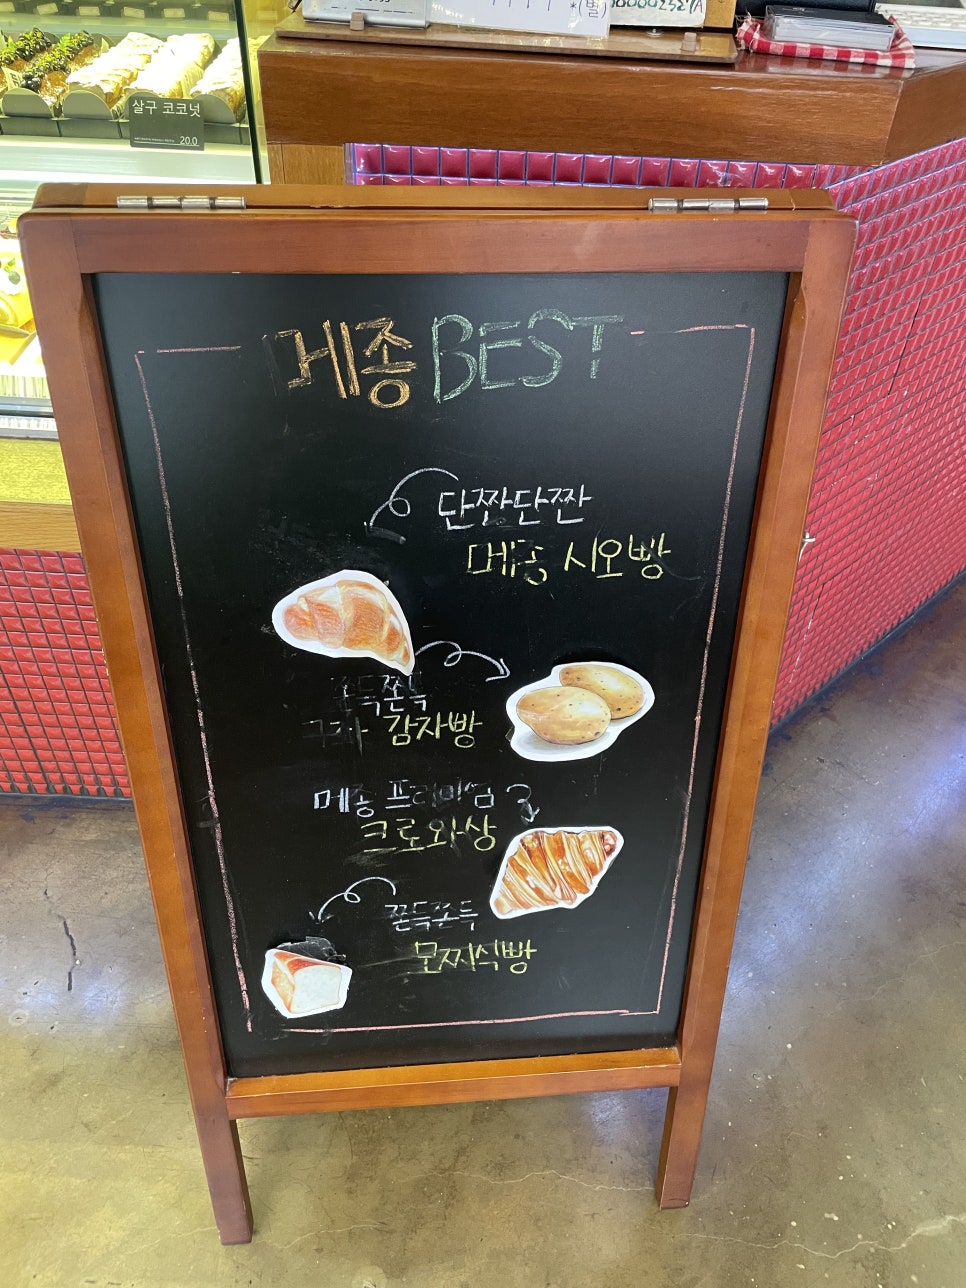 살구 코코넛
20.0
메종 BEST
단짠단짠
메종 시오빵
쫀득쫀득
감자빵
메종 프리미엄
크로와상
쫀득쫀득
모찌식빵